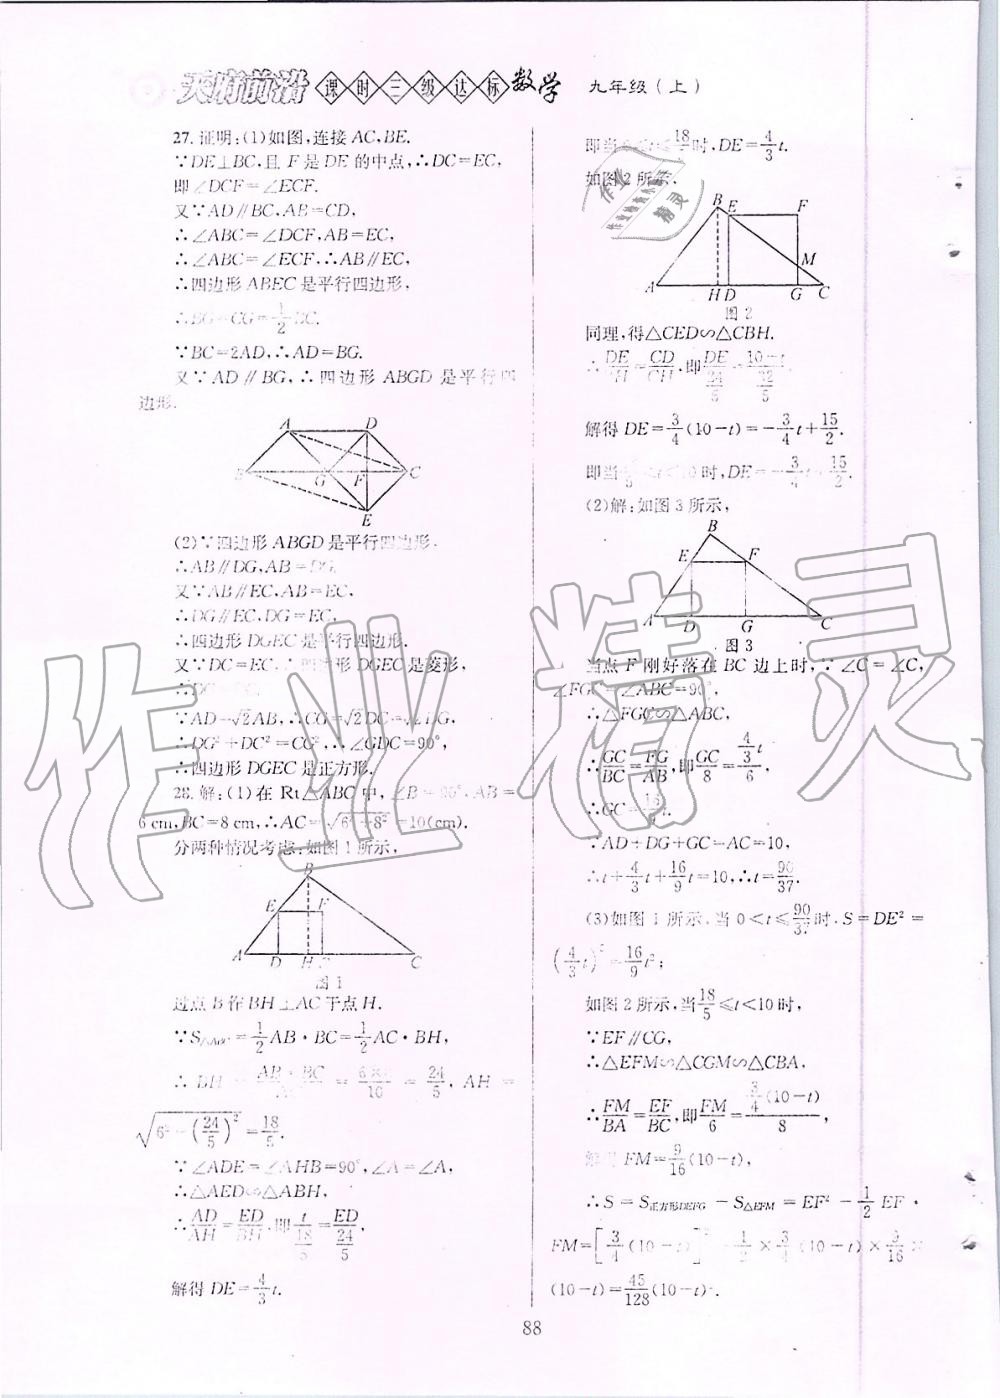 天府前沿 课时三级达标 数学 九年级(上)
27. 证明:(1)如图,连接 AC,BE.
∵DE⊥BC,且 F 是 DE 的中点,∴DC=EC,
即∠DCF=∠ECF.
又∵AD∥BC,AB=CD,
∴∠ABC=∠DCF,AB=EC,
∴∠ABC=∠ECF,∴AB∥EC,
∴四边形 ABEC 是平行四边形,
∴BG=CG=1/2BC.
∵BC=2AD,∴AD=BG.
又∵AD∥BG,∴四边形 ABGD 是平行四
边形.
A D
B G F C
E
(2)∵四边形 ABGD 是平行四边形,
∴AB∥DG,AB=DG.
又∵AB∥EC,AB=EC,
∴DG∥EC,DG=EC,
∴四边形 DGEC 是平行四边形.
又∵DC=EC,∴四边形 DGEC 是菱形,
∴DG=DC.
∵AD=√2AB,∴CG=√2DC=√2DG,
∴DG²+DC²=CG²,∴∠GDC=90°,
∴四边形 DGEC 是正方形.
28. 解:(1)在 Rt△ABC 中,∠B=90°,AB=
6 cm,BC=8 cm,∴AC=√(6²+8²)=10(cm).
分两种情况考虑:如图 1 所示,
B
E F
A D H C
图 1
过点 B 作 BH⊥AC 于点 H.
∵S△ABC=1/2AB·BC=1/2AC·BH,
∴BH=(AB·BC)/AC=(6×8)/10=24/5,AH=
√(6²-(24/5)²)=18/5.
∵∠ADE=∠AHB=90°,∠A=∠A,
∴△AED∽△ABH,
∴AD/AH=ED/BH,即t/(18/5)=ED/(24/5),
解得 DE=4/3t.
即当 0<t≤18/5时,DE=4/3t.
如图 2 所示,
B E F
M
A H D G C
图 2
同理,得△CED∽△CBH.
∴DE/BH=CD/CH,即DE/(24/5)=(10-t)/(32/5)
解得 DE=3/4(10-t)=-3/4t+15/2.
即当18/5<t<10 时,DE=-3/4t+15/2.
(2)解:如图 3 所示,
B
E F
A D G C
图 3
当点 F 刚好落在 BC 边上时,∵∠C=∠C,
∠FGC=∠ABC=90°,
∴△FGC∽△ABC,
∴GC/BC=FG/AB,即GC/8=(4/3t)/6,
∴GC=16/9t.
∵AD+DG+GC=AC=10,
∴t+4/3t+16/9t=10,∴t=90/37.
(3)如图 1 所示,当 0<t≤90/37时,S=DE²=
(4/3t)²=16/9t²;
如图 2 所示,当18/5≤t<10 时,
∵EF∥CG,
∴△EFM∽△CGM∽△CBA,
∴FM/BA=EF/BC,即FM/6=(3/4(10-t))/8,
解得 FM=9/16(10-t),
∴S=S正方形DEFG-S△EFM=EF²-1/2EF·
FM=[3/4(10-t)]²-1/2×3/4(10-t)×9/16×
(10-t)=45/128(10-t)².
88
作业精灵